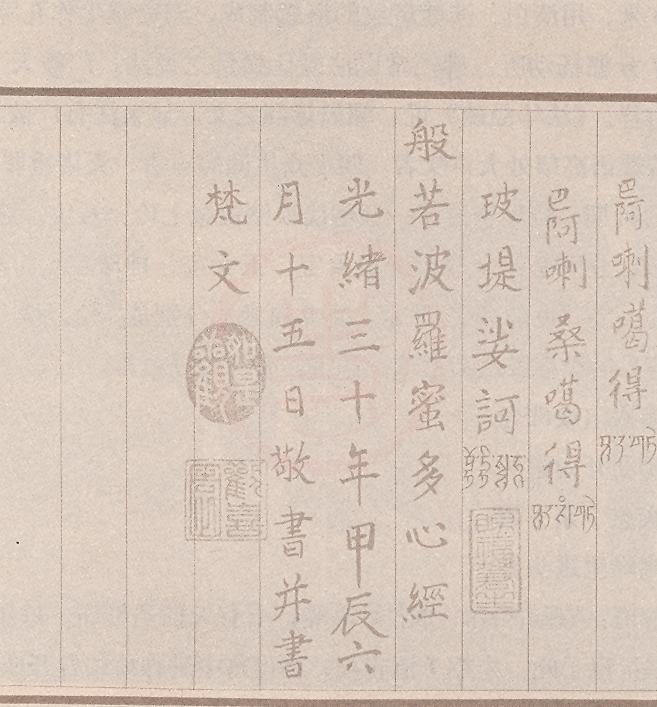 巴阿喇噶得
巴阿喇桑噶得
玻堤娑訶
般若波羅蜜多心經
光緒三十年甲辰六
月十五日敬書并書
梵文
如是